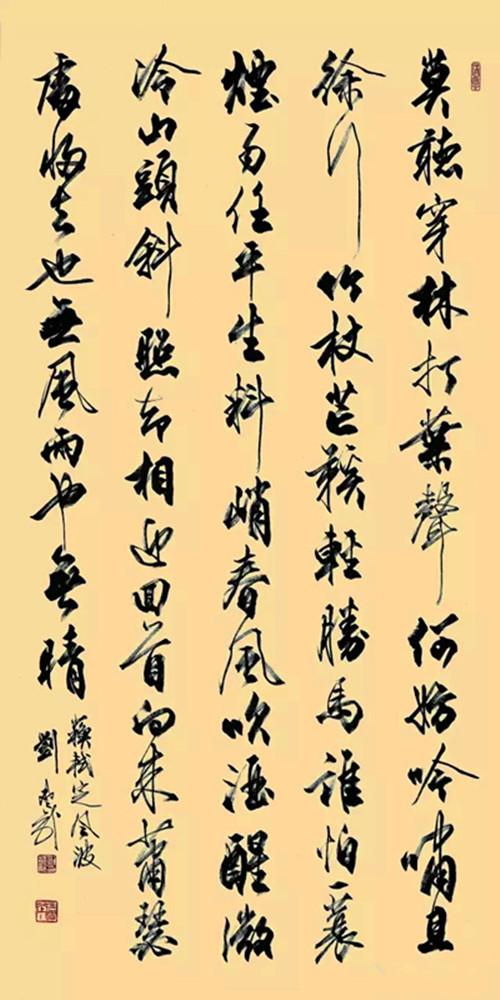 莫聽穿林打葉聲何妨吟嘯且
徐行竹杖芒鞵輕勝馬誰怕一蓑
煙雨任平生料峭春風吹酒醒微
冷山頭斜照却相迎回首向來蕭瑟
處歸去也無風雨也無晴
蘇軾定風波
劉